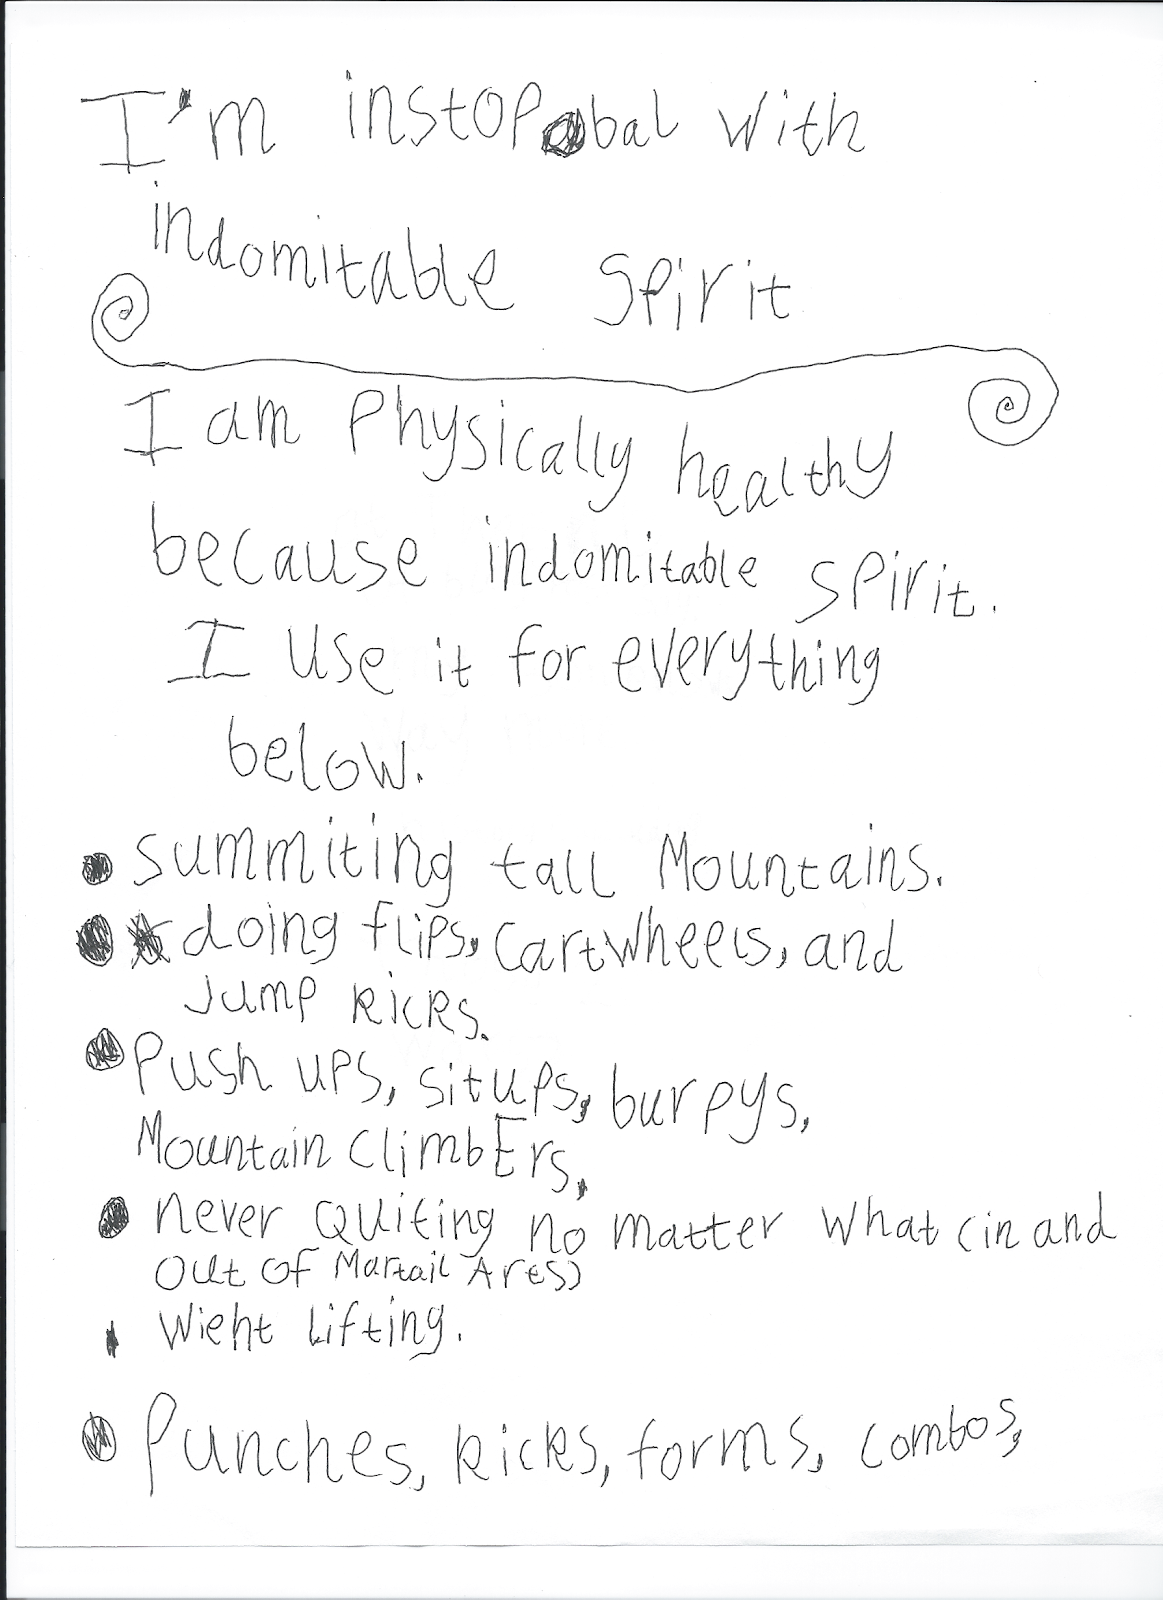 I'm instopabal with
indomitable Spirit
I am Physically healthy
because indomitable spirit.
I use it for everything
below.
• summiting tall Mountains.
• doing flips, Cartwheels, and
Jump kicks.
• Push ups, situps, burpys,
Mountain climbErs,
• never Quiting no matter what (in and
out of Martail Arts)
• Wieht Lifting.
• Punches, kicks, forms, combos,